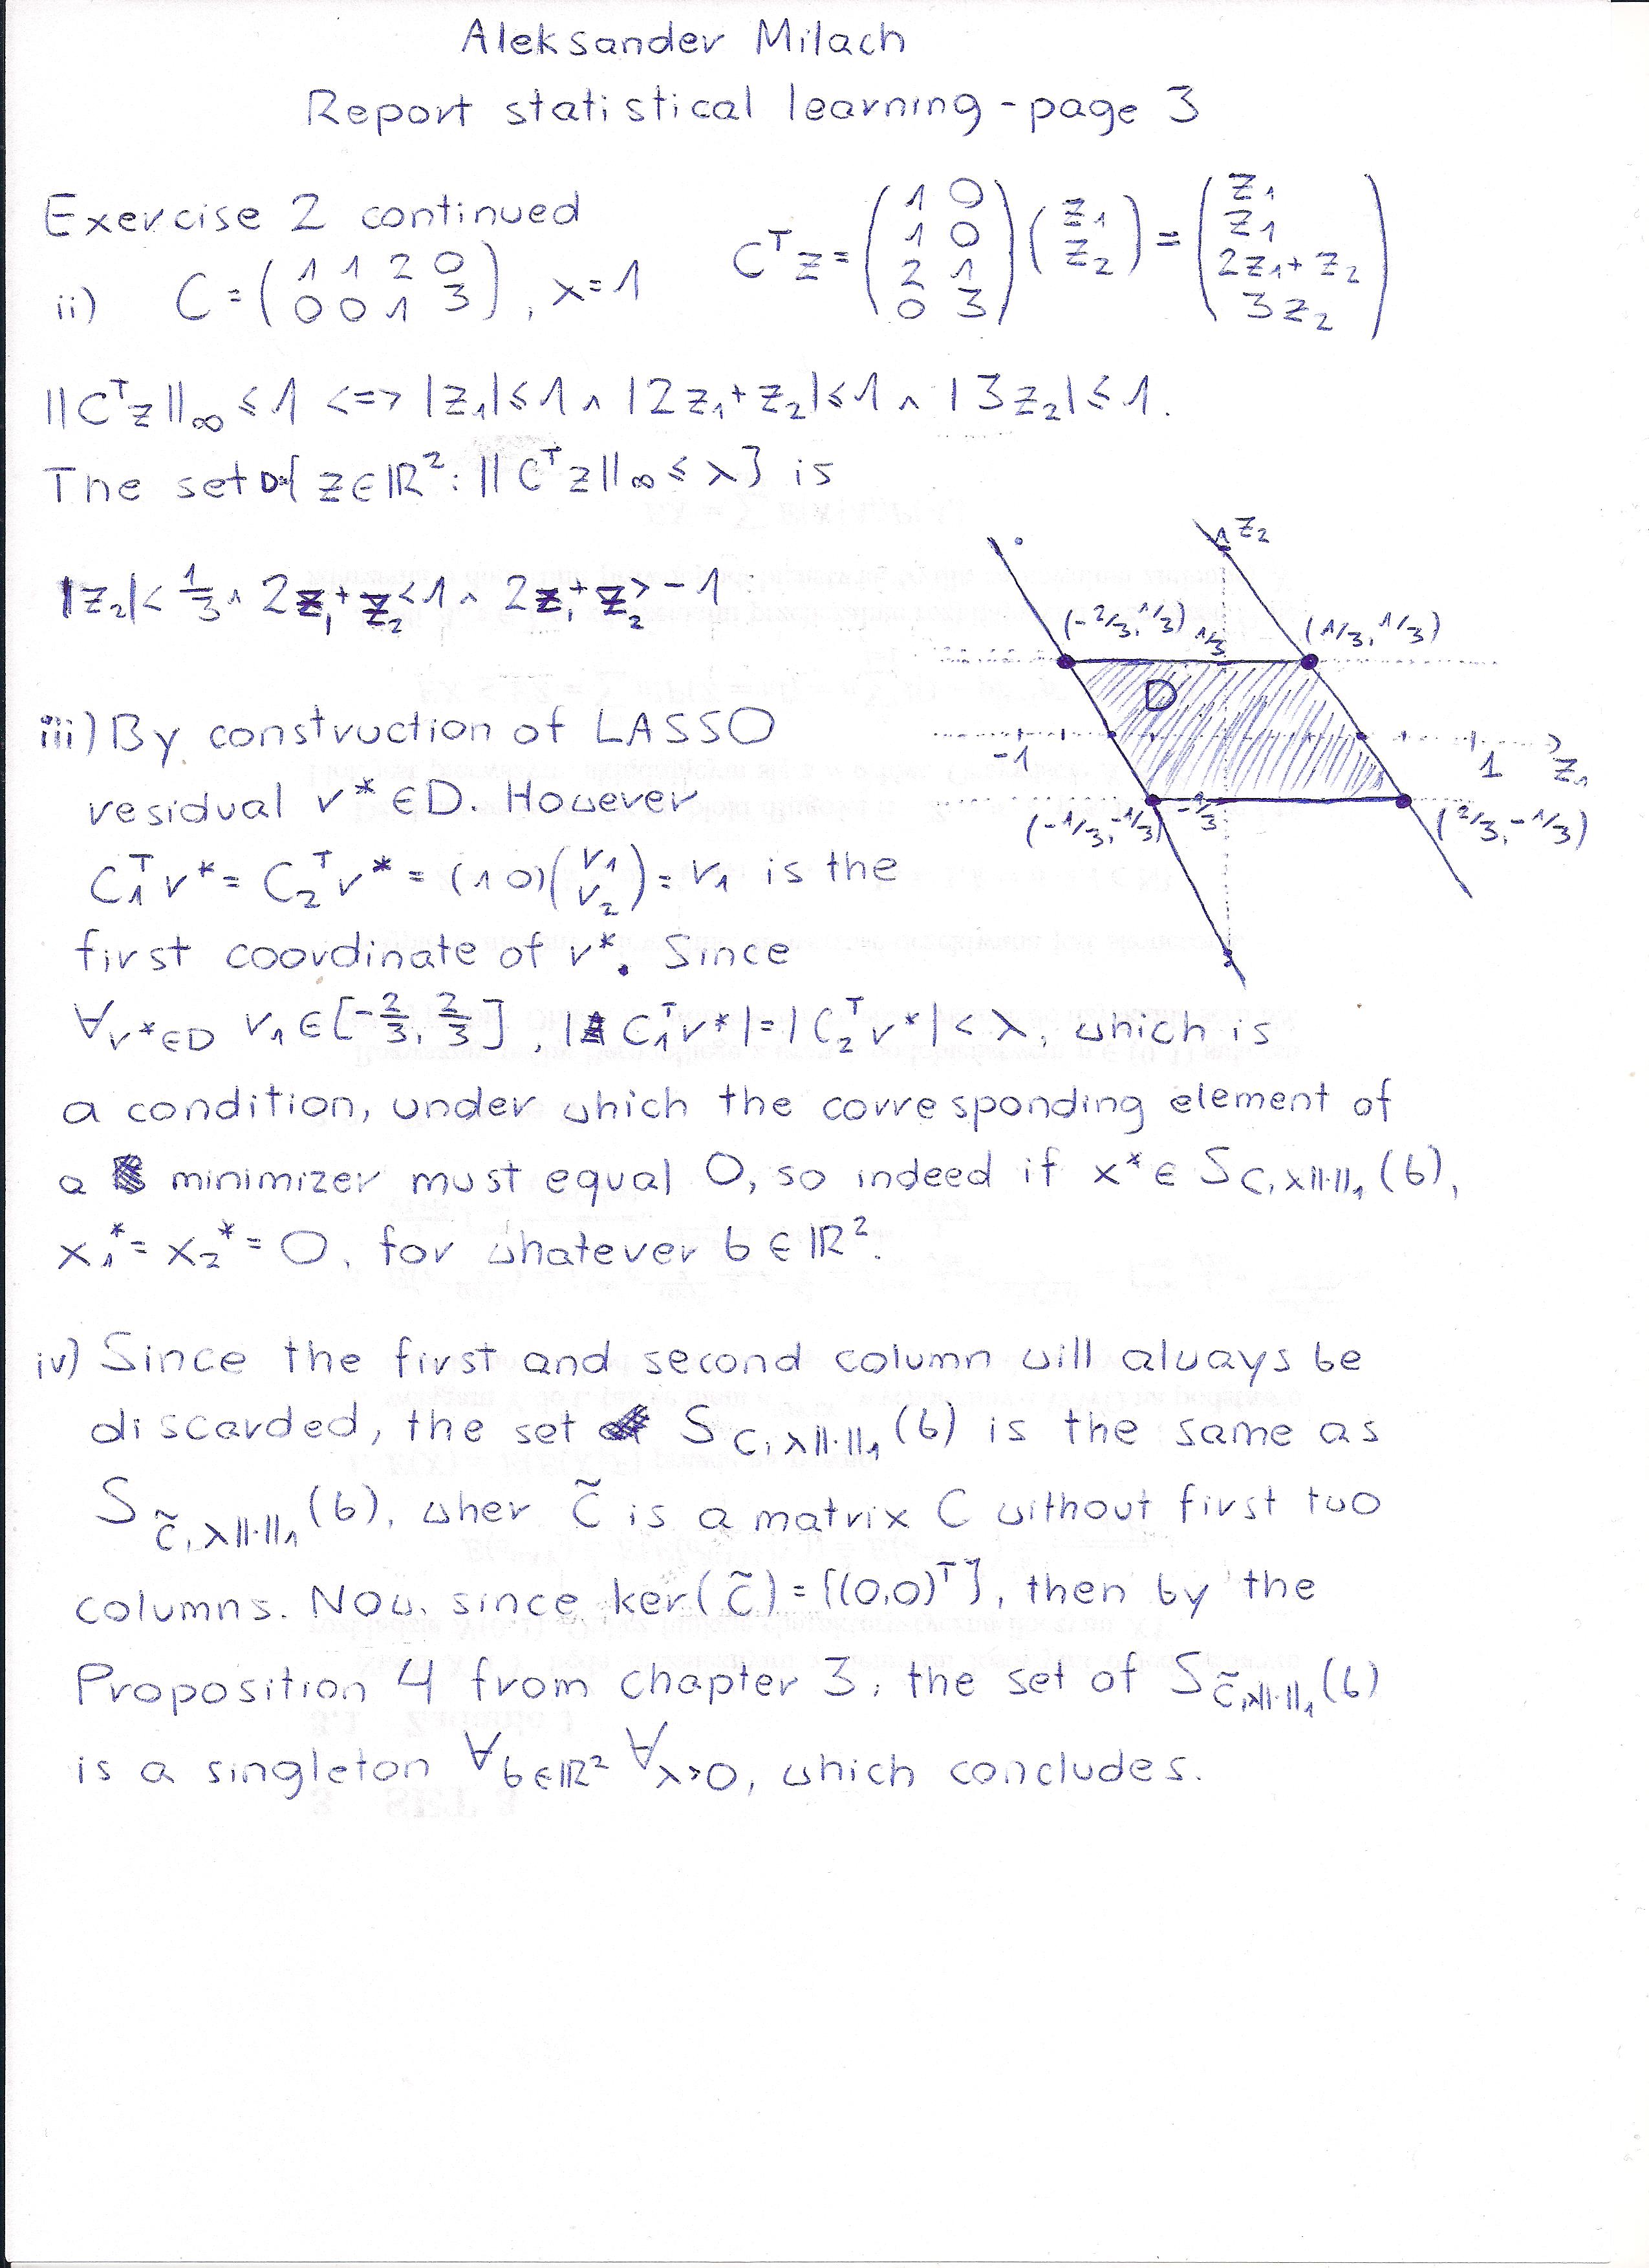 Aleksander Milach
Report statistical learning - page 3
Exercise 2 continued
ii) C = ( 1 1 2 0 / 0 0 1 3 ), λ = 1   C^T z = ( 1 0 / 1 0 / 2 1 / 0 3 ) ( z₁ / z₂ ) = ( z₁ / z₁ / 2z₁ + z₂ / 3z₂ )
||C^T z||∞ ≤ 1 <=> |z₁| ≤ 1 ∧ |2z₁ + z₂| ≤ 1 ∧ |3z₂| ≤ 1.
The set D={ z ∈ ℝ² : ||C^T z||∞ ≤ λ } is
|z₂| < 1/3 ∧ 2z₁ + z₂ < 1 ∧ 2z₁ + z₂ > -1
z₂
(-2/3, 1/3) 1/3 (1/3, 1/3)
D
-1 1 z₁
(-1/3, -1/3) -1/3 (2/3, -1/3)
iii) By construction of LASSO
residual r* ∈ D. However
C₁^T r* = C₂^T r* = (1 0)( r₁ / r₂ ) = r₁ is the
first coordinate of r*. Since
∀ r*∈D r₁ ∈ [-2/3, 2/3], |C₁^T r*| = |C₂^T r*| < λ, which is
a condition, under which the corresponding element of
a minimizer must equal 0, so indeed if x* ∈ S_{C,λ||·||₁}(b),
x₁* = x₂* = 0, for whatever b ∈ ℝ².
iv) Since the first and second column will always be
discarded, the set S_{C,λ||·||₁}(b) is the same as
S_{C̃,λ||·||₁}(b), wher C̃ is a matrix C without first two
columns. Now, since ker(C̃) = {(0,0)^T}, then by the
Proposition 4 from chapter 3, the set of S_{C̃,λ||·||₁}(b)
is a singleton ∀ b∈ℝ² ∀ λ>0, which concludes.